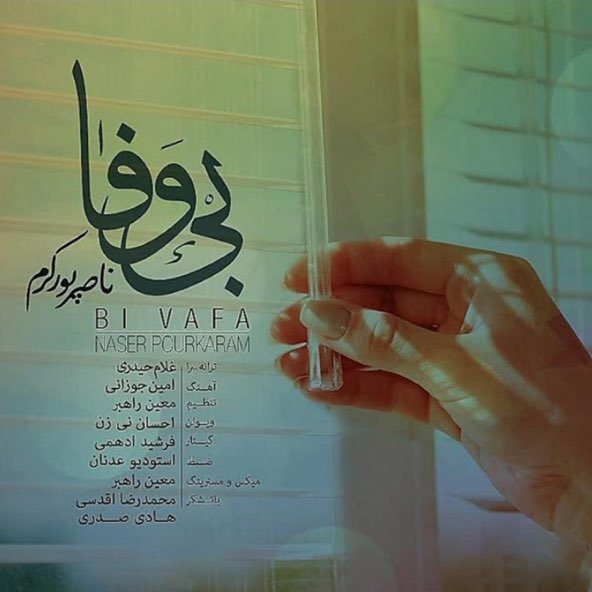 بی وفا
ناصر پورکرم
BI VAFA
NASER POURKARAM
ترانه سرا | غلام حیدری
آهنگ | امین جوزانی
تنظیم | معین راهبر
ویولن | احسان نی زن
گیتار | فرشید ادهمی
ضبط | استودیو عدنان
میکس و مسترینگ | معین راهبر
باتشکر | محمدرضا اقدسی
هادی صدری